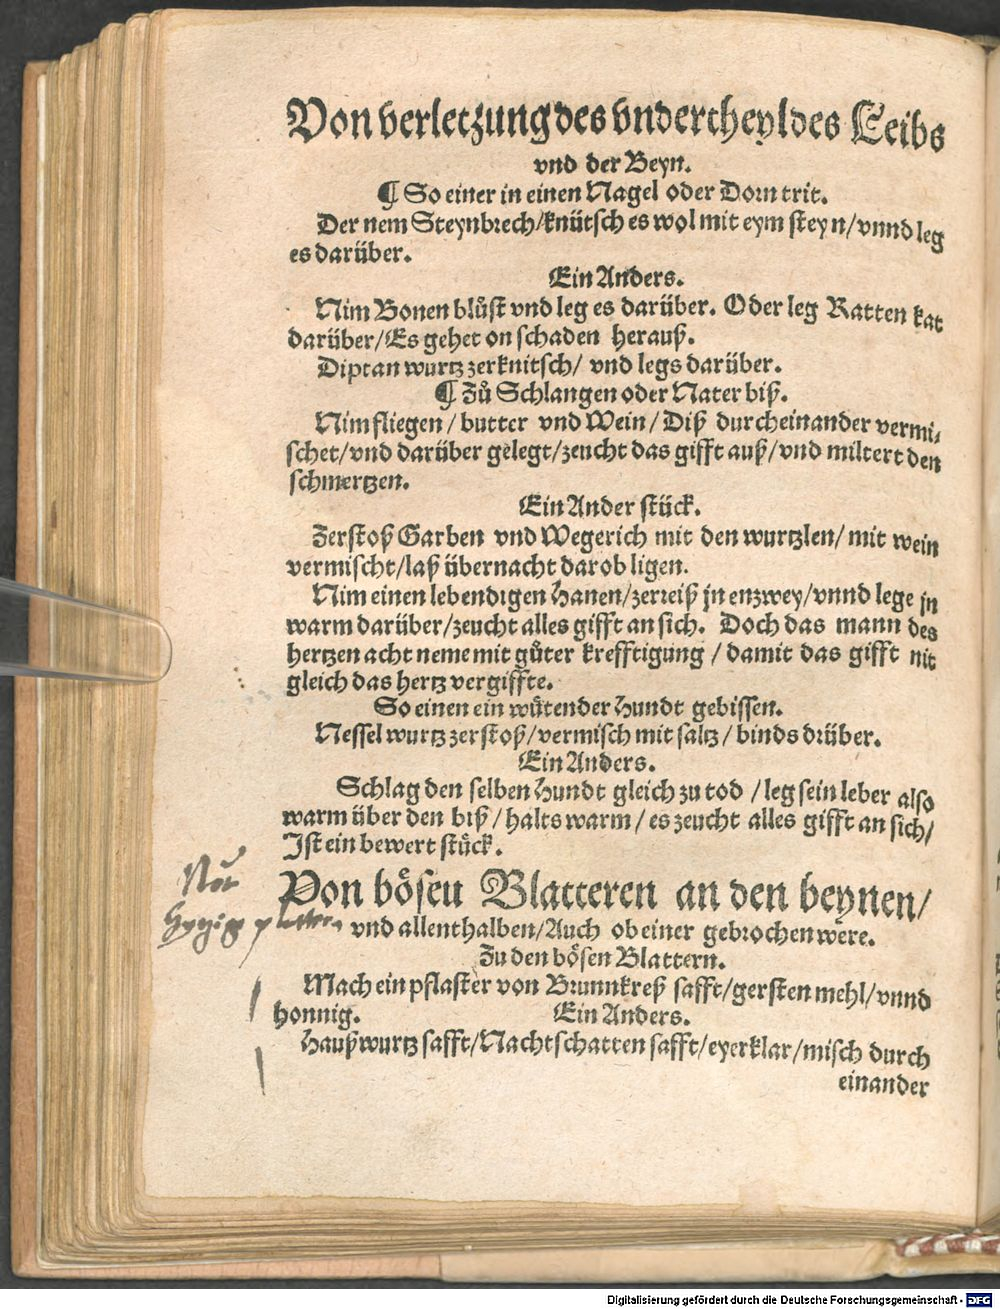 Von verletzung des vndertheyl des Leibs
vnd der Beyn.
¶ So einer in einen Nagel oder Dorn trit.
Der nem Steynbrech/knütsch es wol mit eym steyn/vnnd leg
es darüber.
Ein Anders.
Nim Bonen blůst vnd leg es darüber. Oder leg Ratten kat
darüber/Es gehet on schaden herauß.
Diptan wurtz zerknitsch/ vnd legs darüber.
¶ Zů Schlangen oder Nater biß.
Nim fliegen / butter vnd Wein / Diß durcheinander vermi-
schet/vnd darüber gelegt/zeucht das gifft auß/vnd miltert den
schmertzen.
Ein Ander stück.
Zerstoß Garben vnd Wegerich mit den wurtzlen/ mit wein
vermischt/laß übernacht darob ligen.
Nim einen lebendigen Hanen/zerreiß jn enzwey/vnnd lege jn
warm darüber/zeucht alles gifft an sich. Doch das mann des
hertzen acht neme mit gůter krefftigung / damit das gifft nit
gleich das hertz vergiffte.
So einen ein wütender Hundt gebissen.
Nessel wurtz zerstoß/vermisch mit saltz / binds drüber.
Ein Anders.
Schlag den selben Hundt gleich zu tod / leg sein leber also
warm über den biß / halts warm / es zeucht alles gifft an sich/
Ist ein bewert stück.
Von bösen Blatteren an den beynen/
vnd allenthalben/Auch ob einer gebrochen were.
Zu den bösen Blattern.
Mach ein pflaster von Brunnkreß safft/gersten mehl/vnnd
honnig. Ein Anders.
Haußwurtz safft/Nachtschatten safft/eyerklar/misch durch
einander
Digitalisierung gefördert durch die Deutsche Forschungsgemeinschaft - DFG